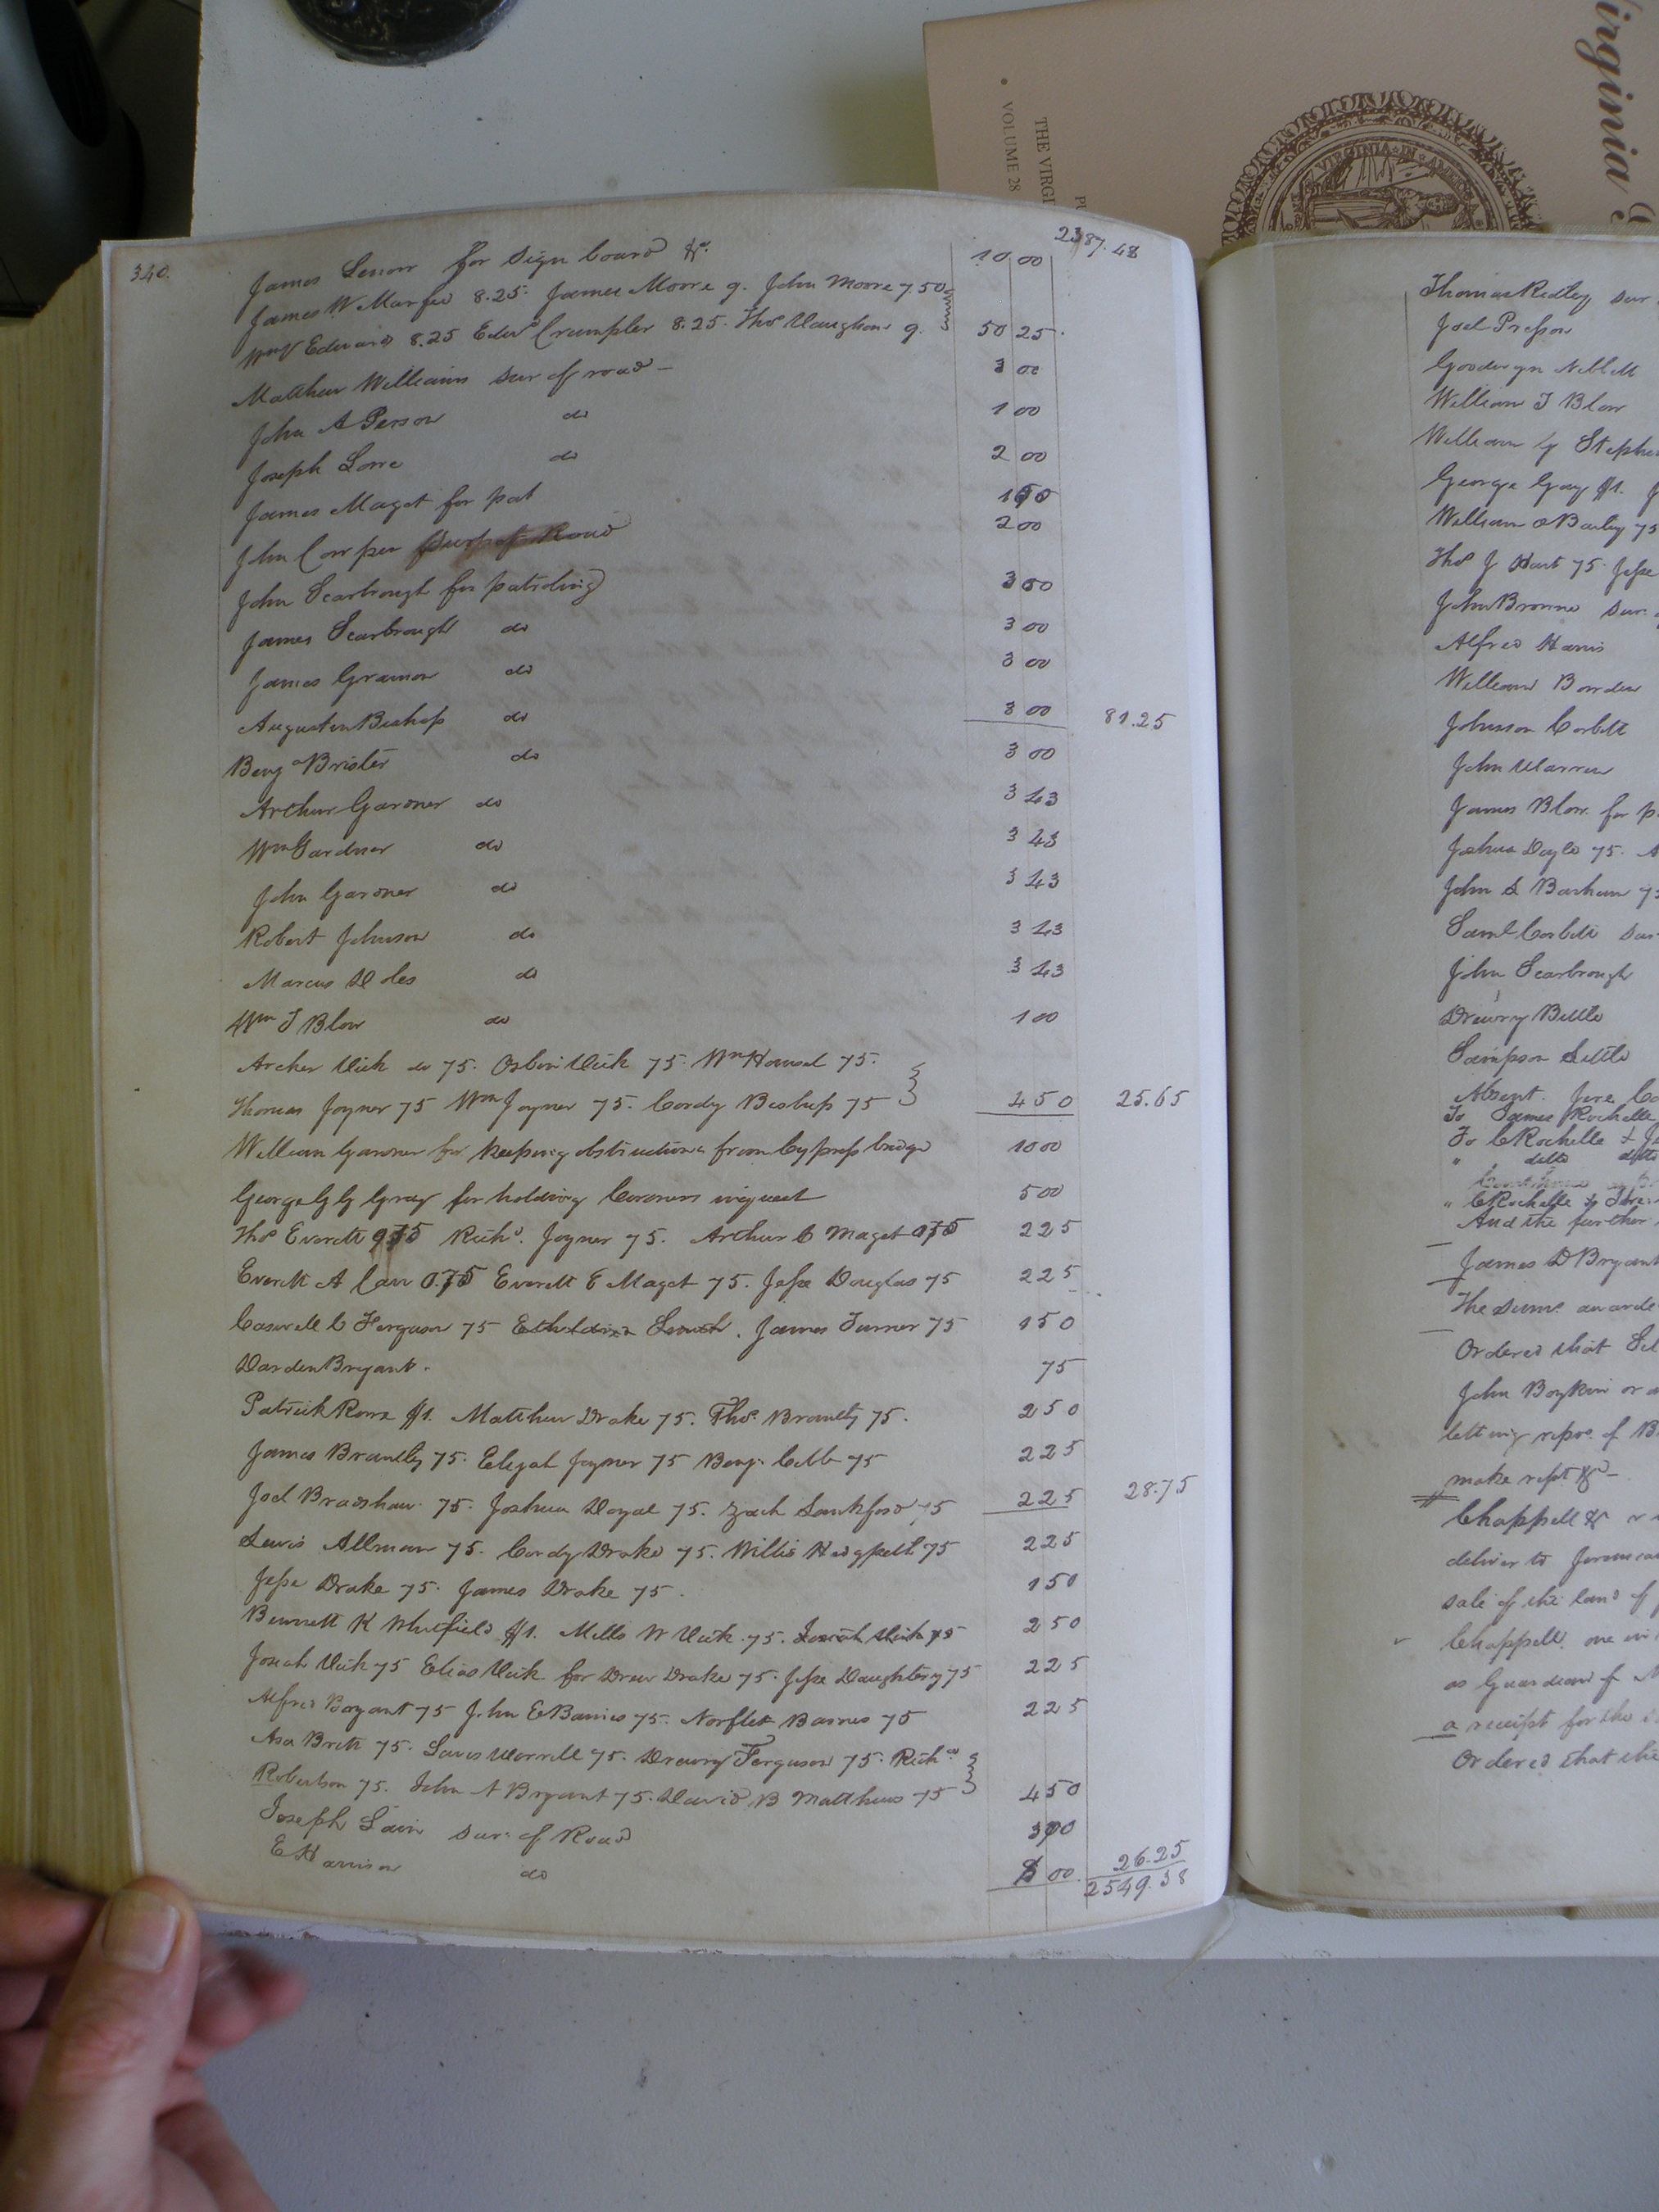 Virginia
THE VIRGI
VOLUME 28
340.
2387.48
James Lenow for sign board &c. 10 00
James W Murfee 8.25. James Moore 9. John Moore 7 50
Wm Edwards 8.25 Edwd Crumpler 8.25. Thos Vaughan 9. 50 25.
Matthew Williams Sur of road - 3 00
John A Person do 1 00
Joseph Lowe do 2 00
James Maget for pat 1 50
John Cowper Sur of Road 2 00
John Scarbrough for patroling 3 00
James Scarbrough do 3 00
James Gramon do 3 00
Augustin Bishop do 3 00 81.25
Benj Brister do 3 00
Arthur Gardner do 3 43
Wm Gardner do 3 43
John Gardner do 3 43
Robert Johnson do 3 43
Marcus Doles do 3 43
Wm T Blow do 1 00
Archer Vick do 75. Osborn Vick 75. Wm Hansel 75.
Thomas Joyner 75 Wm Joyner 75. Cordy Bishop 75 4 50 25.65
William Gardner for keeping obstructions from Cypress bridge 10 00
George G G Gray for holding Coroners inquest 5 00
Thos Everett 075 Richd. Joyner 75. Arthur C Maget 075 2 25
Everett A Carr 0.75 Everett E Maget 75. Jesse Douglas 75 2 25
Caswell C Ferguson 75 James Turner 75 1 50
Darden Bryant. 75
Patrick Rowe $1. Matthew Drake 75. Thos. Brantly 75. 2 50
James Brantly 75. Elijah Joyner 75 Benj. Cobb 75 2 25
Joel Bradshaw 75. Joshua Doyal 75. Zach Lankford 75 2 25 28.75
Lewis Allman 75. Cordy Drake 75. Willis Hedgpeth 75 2 25
Jesse Drake 75. James Drake 75. 1 50
Bennett K Whitfield $1. Mills W Vick 75. Josiah Vick 75 2 50
Josiah Vick 75 Elias Vick for Drew Drake 75. Jesse Daughtery 75 2 25
Alfred Bryant 75 John E Barnes 75. Norflet Barnes 75 2 25
Asa Britt 75. Lewis Worrell 75. Drewry Ferguson 75. Richd
Robertson 75. John A Bryant 75. David B Matthews 75 4 50
Joseph Lain Sur. of Road 3 00
E Harrison do 8 00 26.25
2549.38
Thomas Ridley Sur
Joel Presson
Goodwyn Niblett
William T Blow
William G Stephen
George Gay $1.
William O Bailey 75
Thos J Hart 75. Jesse
John Browne Sur.
Alfred Harris
William Borden
Johnson Corbitt
John Warren
James Blow for p
Joshua Doyle 75.
John S Barham 75
Saml Corbitt Sur
John Scarbrough
Drewry Bittle
Sampson Settle
Absent.
To James Rochelle
To C Rochelle
" ditto ditto
" C Rochelle
And the further
James D Bryant
The sums awarde
Ordered that
John Boykin or
letting repre. of B
make rept &c -
Chappell &c
deliver to
sale of the land of
Chappell. one
as Guardian of
a receipt for the
Ordered that the